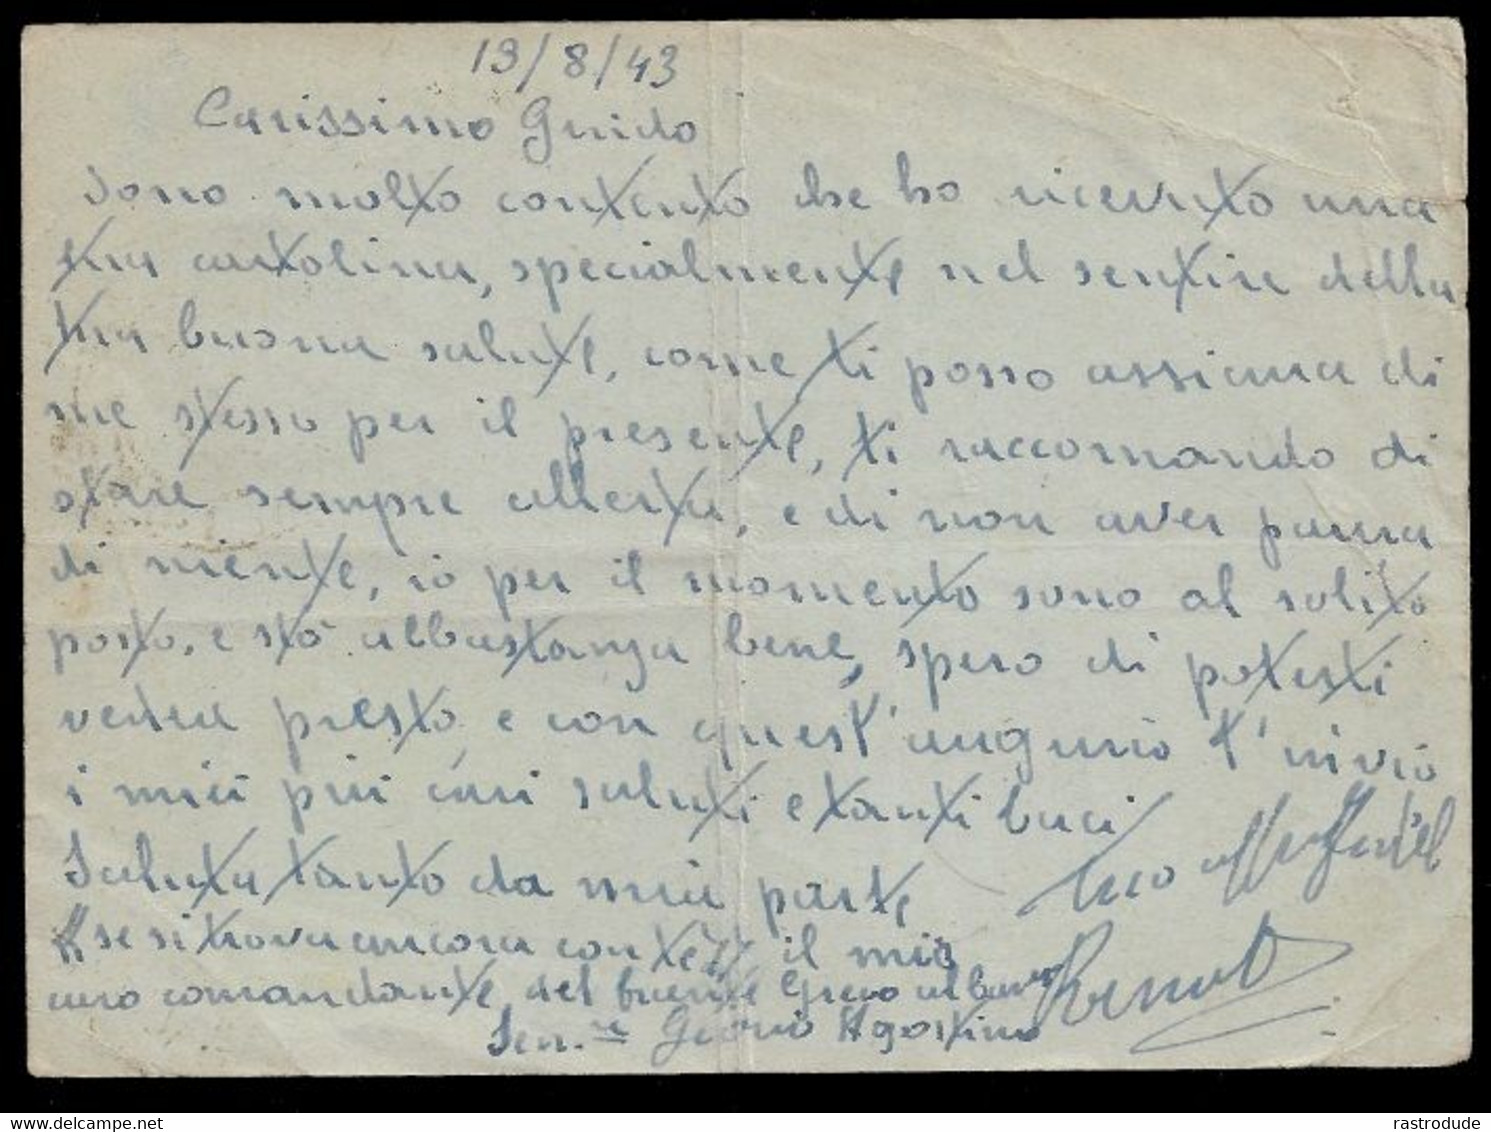 19/8/43
Carissimo Guido
Sono molto contento che ho ricevuto una
tua cartolina, specialmente nel sentire della
tua buona salute, come ti posso assicura di
me stesso per il presente, ti raccomando di
stare sempre allerta, e di non aver paura
di niente, io per il momento sono al solito
posto, e stò abbastanza bene, spero di poterti
vedere presto, e con quest'augurio t'invio
i miei più cari saluti e tanti baci
tuo
Saluta tanto da mia parte
se si trova ancora con te il mio
caro comandante del fronte Greco albanese
Ten.te Agostino
www.delcampe.net
rastrodude